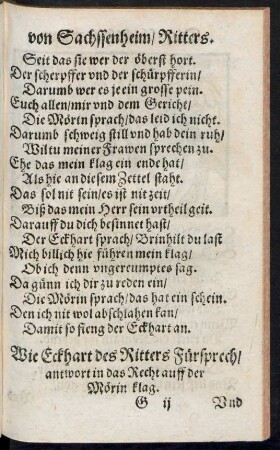 von Sachssenheim/ Ritters.
Seit das sie wer der öberst hort.
Der scherpffer vnd der schürpfferin/
Darumb wer es je ein grosse pein.
Euch allen/ mir vnd dem Gericht/
Die Mörin sprach/ das leid ich nicht.
Darumb schweig still vnd hab dein ruh/
Wiltu meiner Frawen sprechen zu.
Ehe das mein klag ein ende hat/
Als hie an diesem Zettel staht.
Das sol nit sein/ es ist nit zeit/
Biß das mein Herr sein vrtheil geit.
Darauff du dich besinnet hast/
Der Eckhart sprach/ Brinhilt du last
Mich billich hie führen mein klag/
Ob ich denn vngereumptes sag.
Da günn ich dir zu reden ein/
Die Mörin sprach/ das hat ein schein.
Den ich nit wol abschlahen kan/
Damit so fieng der Eckhart an.
Wie Eckhart des Ritters Fürsprech/
antwort in das Recht auff der
Mörin klag.
G ij Vnd